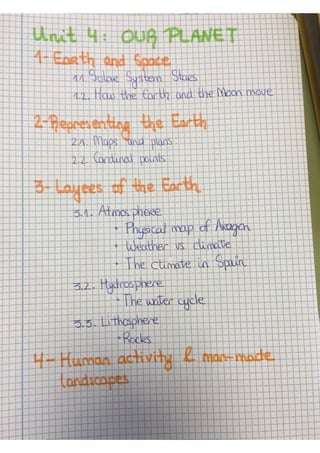 Unit 4: OUR PLANET
1- Earth and Space
1.1. Solar System Stars
1.2. How the Earth and the Moon move
2-Representing the Earth
2.1. Maps and plans
2.2. Cardinal points
3- Layers of the Earth
3.1. Atmosphere
• Physical map of Aragon
• Weather vs climate
• The climate in Spain
3.2. Hydrosphere
• The water cycle
3.3. Lithosphere
• Rocks
4- Human activity & man-made
landscapes